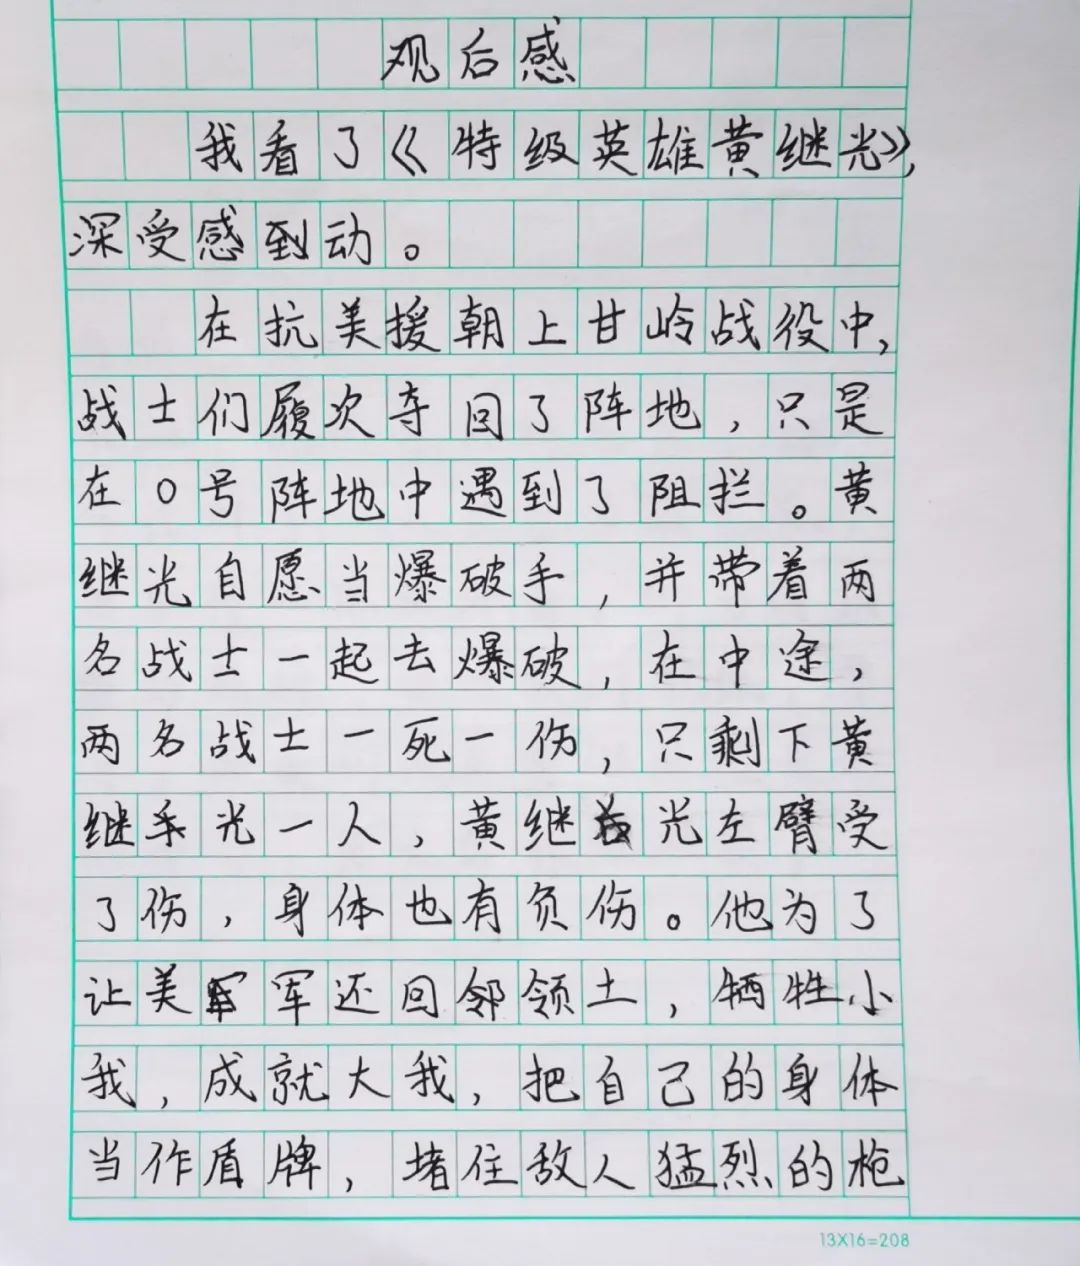 观后感
我看了《特级英雄黄继光》,
深受感到动。
在抗美援朝上甘岭战役中,
战士们履次夺回了阵地,只是
在0号阵地中遇到了阻拦。黄
继光自愿当爆破手,并带着两
名战士一起去爆破,在中途,
两名战士一死一伤,只剩下黄
继手光一人,黄继光左臂受
了伤,身体也有负伤。他为了
让美军还回邻领土,牺牲小
我,成就大我,把自己的身体
当作盾牌,堵住敌人猛烈的枪
13X16=208